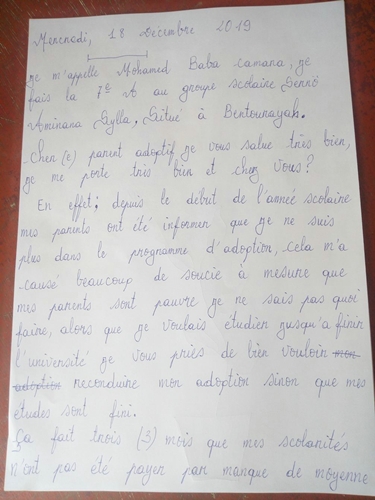 Mercredi, 18 Décembre 2019
je m'appelle Mohamed Baba camara, je
fais la 7è A au groupe scolaire Sennö
Aminana Sylla, Situé à Bentourayah.
Cher (e) parent adoptif je vous salue très bien,
je me porte tris bien et chez vous?
En effet; depuis le début de l'année scolaire
mes parents ont été informer que je ne suis
plus dans le programme d'adoption, cela m'a
causé beaucoup de soucie à mesure que
mes parents sont pauvre je ne sais pas quoi
faire, alors que je voulais étudier jusqu'a finir
l'université je vous priés de bien vouloir mon
adoption reconduire mon adoption sinon que mes
études sont fini.
Ça fait trois (3) mois que mes scolarités
n'ont pas été payer par manque de moyenne